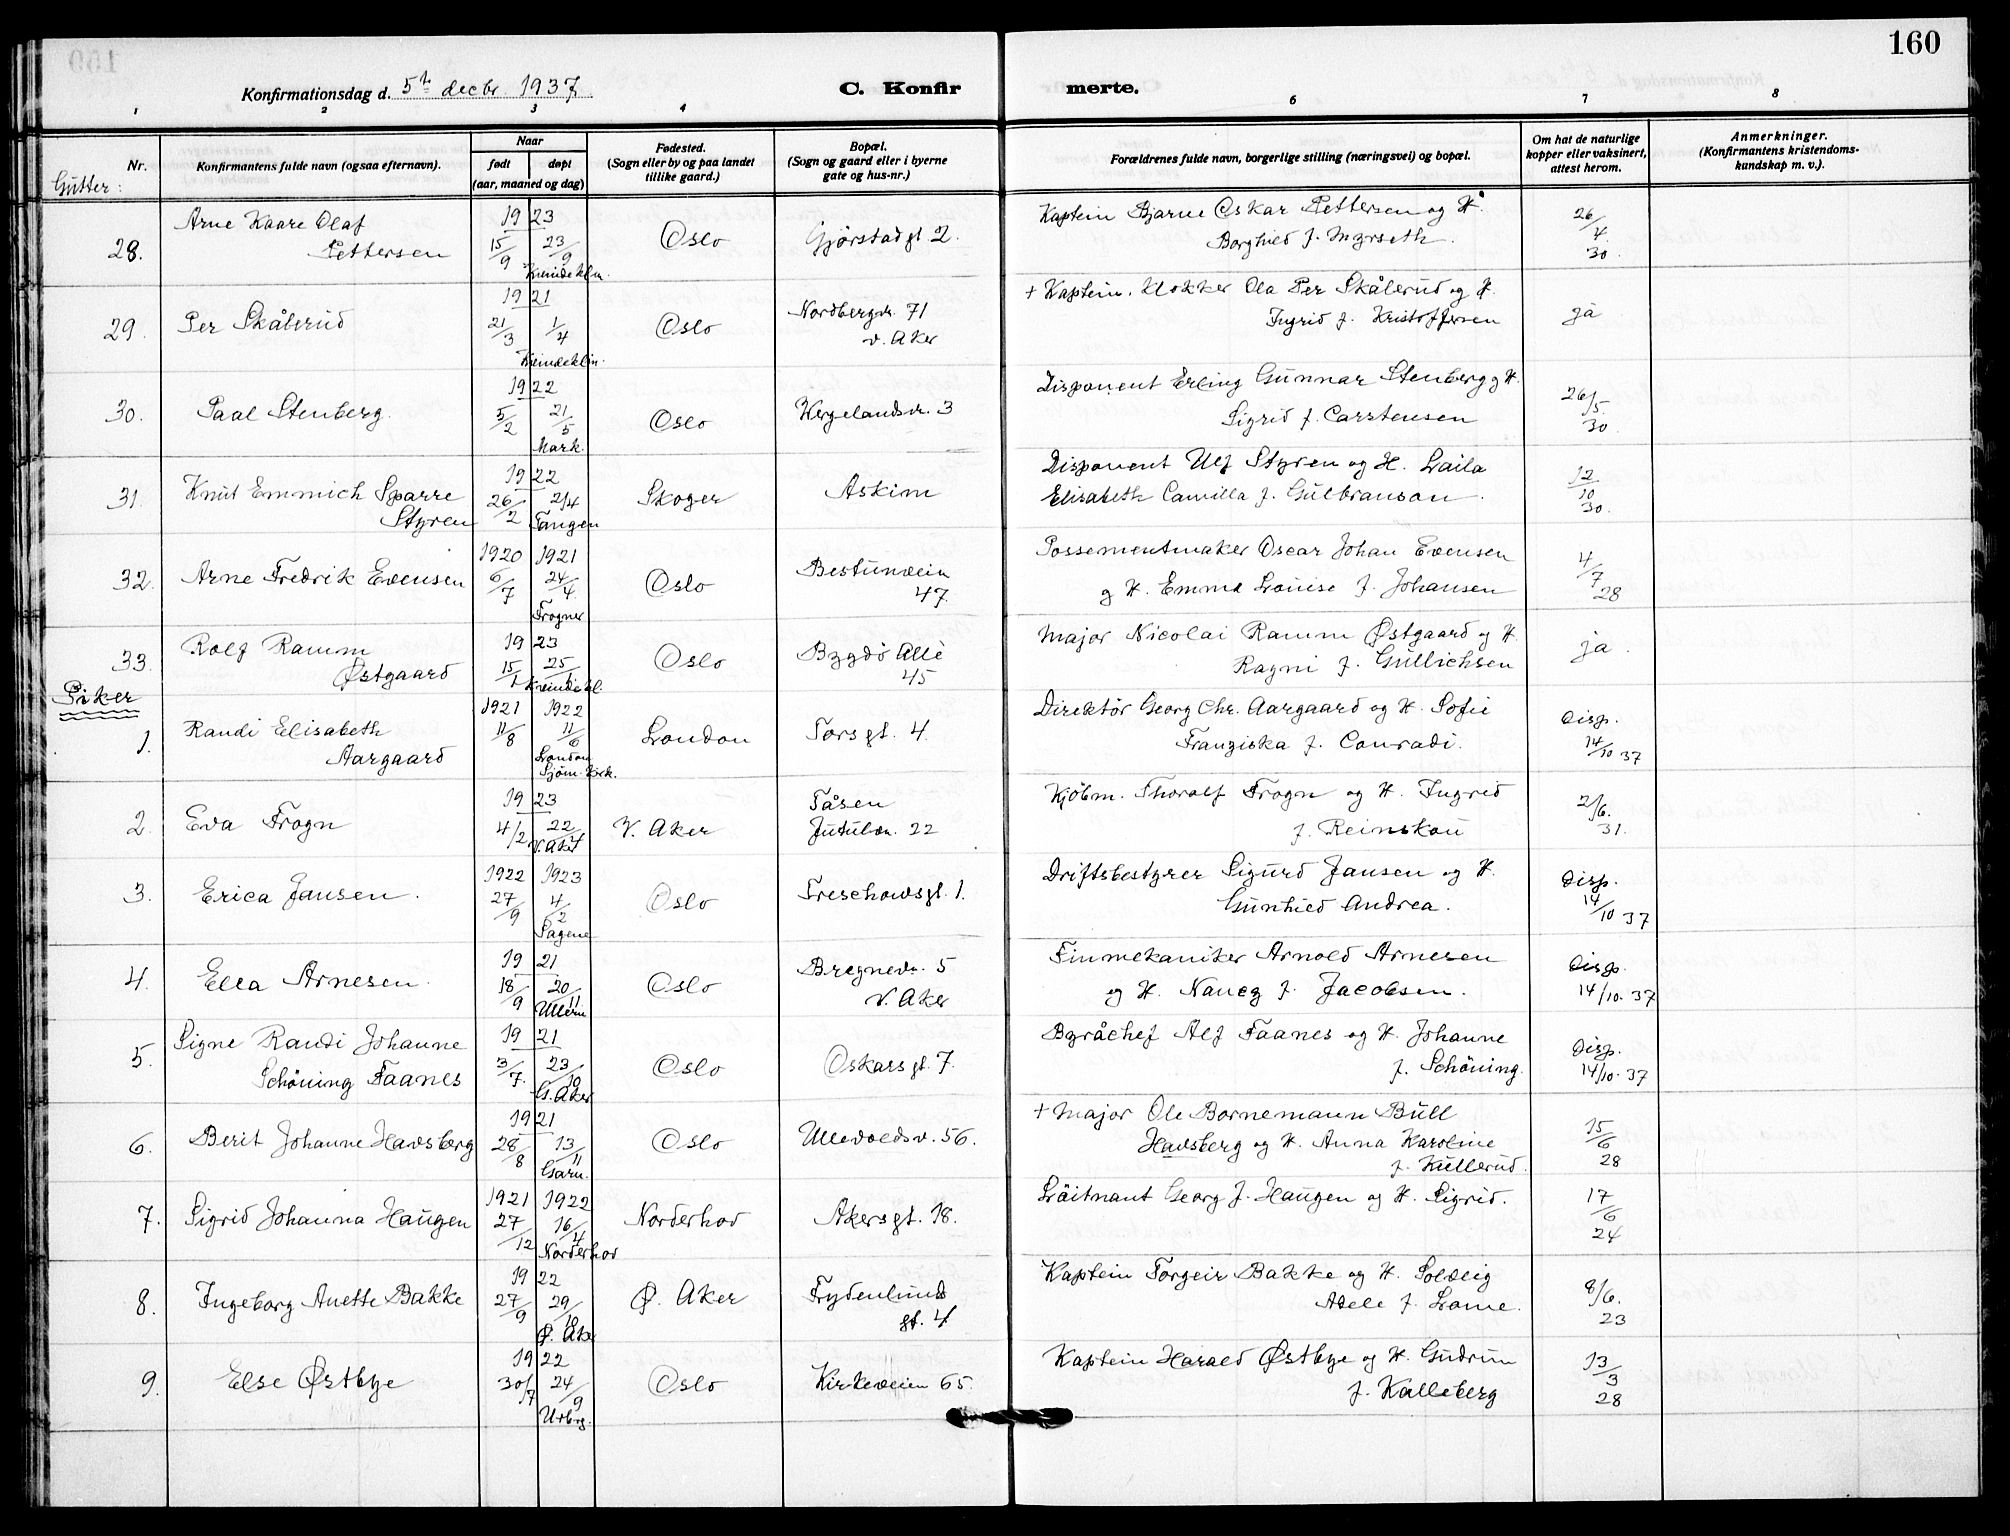 160
Konfirmationsdag d. 5te decbr. 1937.
C. Konfir merte.
1 2 3 4 6 7 8
Nr.
Konfirmantens fulde navn (ogsaa efternavn).
Naar
født
døpt
(aar, maaned og dag)
Fødested.
(Sogn eller by og paa landet
tillike gaard.)
Bopæl.
(Sogn og gaard eller i byerne
gate og hus-nr.)
Forældrenes fulde navn, borgerlige stilling (næringsvei) og bopæl.
Om hat de naturlige
kopper eller vaksinert,
attest herom.
Anmerkninger.
(Konfirmantens kristendoms-
kundskap m. v.).
Gutter:
28. Arne Kaare Olaf Pettersen 1923 15/9 23/9 Kvindeklin. Oslo Gjörstadgt 2. Kaptein Bjarne Oskar Pettersen og H. Borghild f. Myrseth. 26/4 30.
29. Per Skålerud 1921 21/3 1/4 Kvindeklin. Oslo Nordbergv. 71 v. Aker + Kaptein, Klokker Ola Per Skålerud og H. Ingrid f. Kristoffersen ja
30. Paal Stenberg. 1922 5/2 21/5 Mark. Oslo Wergelandsv. 3 Disponent Erling Gunnar Stenberg og H. Sigrid f. Carstensen 26/5. 30.
31. Knut Emmich Sparre Styren 1922 26/2 2/4 Tangen Skoger Askim Disponent Ulf Styren og H. Laila Elisabeth Camilla f. Gulbranson. 12/10 30.
32. Arne Fredrik Evensen 1920 6/7 1921 24/4. Frogner Oslo Bestumveien 47. Possementmaker Oscar Johan Evensen og H. Emma Louise f. Johansen 4/7 28
33. Rolf Ramm Østgaard 1923 15/1 25/1 Kvindekl. Oslo Bygdö Allè 45 Major Nicolai Ramm Østgaard og H. Ragni f. Gullichsen ja.
Piker
1. Randi Elisabeth Aargaard 1921 11/8 1922 11/6 London Sjöm. Kirk. London Torsgt. 4. Direktör Georg Chr. Aargaard og H. Sofie Franziska f. Conradi. Disp. 14/10 37
2. Eva Frogn 1923 4/2 22/4 V. Aker V. Aker Tåsen Jutulv. 22 Kjöbm. Thoralf Frogn og H. Ingrid f. Reinskou 2/6. 31.
3. Erica Jansen. 1922 27/9 1923 4/2 Sagene Oslo Treschowsgt. 1. Driftsbestyrer Sigurd Jansen og H. Gunhild Andrea. Disp. 14/10 37
4. Ella Arnesen. 1921 18/9 20/11 Ullern Oslo Bregnev. 5 V. Aker Finmekaniker Arnold Arnesen og H. Nancy f. Jacobsen. Disp. 14/10. 37
5. Signe Randi Johanne Schöning Faanes 1921 3/7. 23/10 G. Aker Oslo Oskarsgt. 7. Byråchef Alf Faanes og H. Johanne f. Schöning. Disp. 14/10. 37
6. Berit Johanne Havsberg 1921 28/8 13/11 Garn. Oslo Ullevoldsv. 56. + Major Ole Bornemann Bull Havsberg og H. Anna Karoline f. Kullerud. 15/6 28
7. Sigrid Johanna Haugen 1921 27/12 1922 16/4 Norderhov Norderhov Akersgt. 18. Löitnant Georg J. Haugen og H. Sigrid. 17/6 24
8. Ingeborg Anette Bakke 1922 27/9 29/10 Ø. Aker Ø. Aker Frydenlunds gt. 4 Kaptein Torgeir Bakke og H. Solveig Adele f. Lome. 8/6. 23
9. Else Østbye 1922 30/7 24/9 Urbrg. Oslo Kirkeveien 65. Kaptein Harald Østbye og H. Gudrun f. Kalleberg 13/3 28